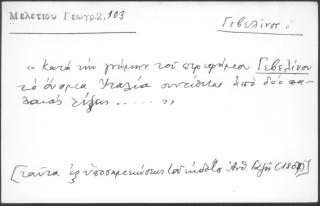 Μελετίου Γεωγρ. 2, 103
Γεβελῖνος ὁ
« κατὰ τὴν γνώμην τοῦ περιφήμου Γεβελίνου
τὸ ὄνομα Ἰταλία συντίθεται ἀπὸ δύο πα-
λαιὰς λέξεις ..... »
[ταῦτα ἐξ ὑποσημειώσεως τοῦ ἐκδότου Ἀνθ. Γαζῆ (1807)]